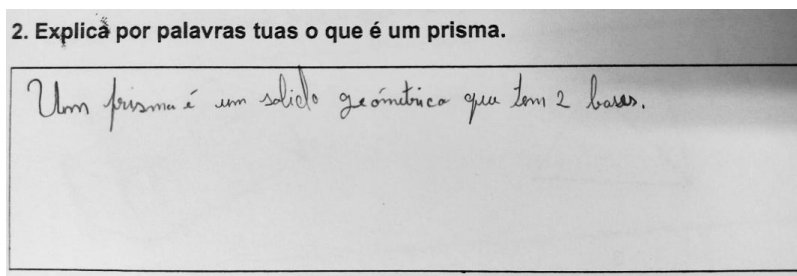 2. Explica por palavras tuas o que é um prisma.
Um prisma é um solido geómetrico que tem 2 bases.